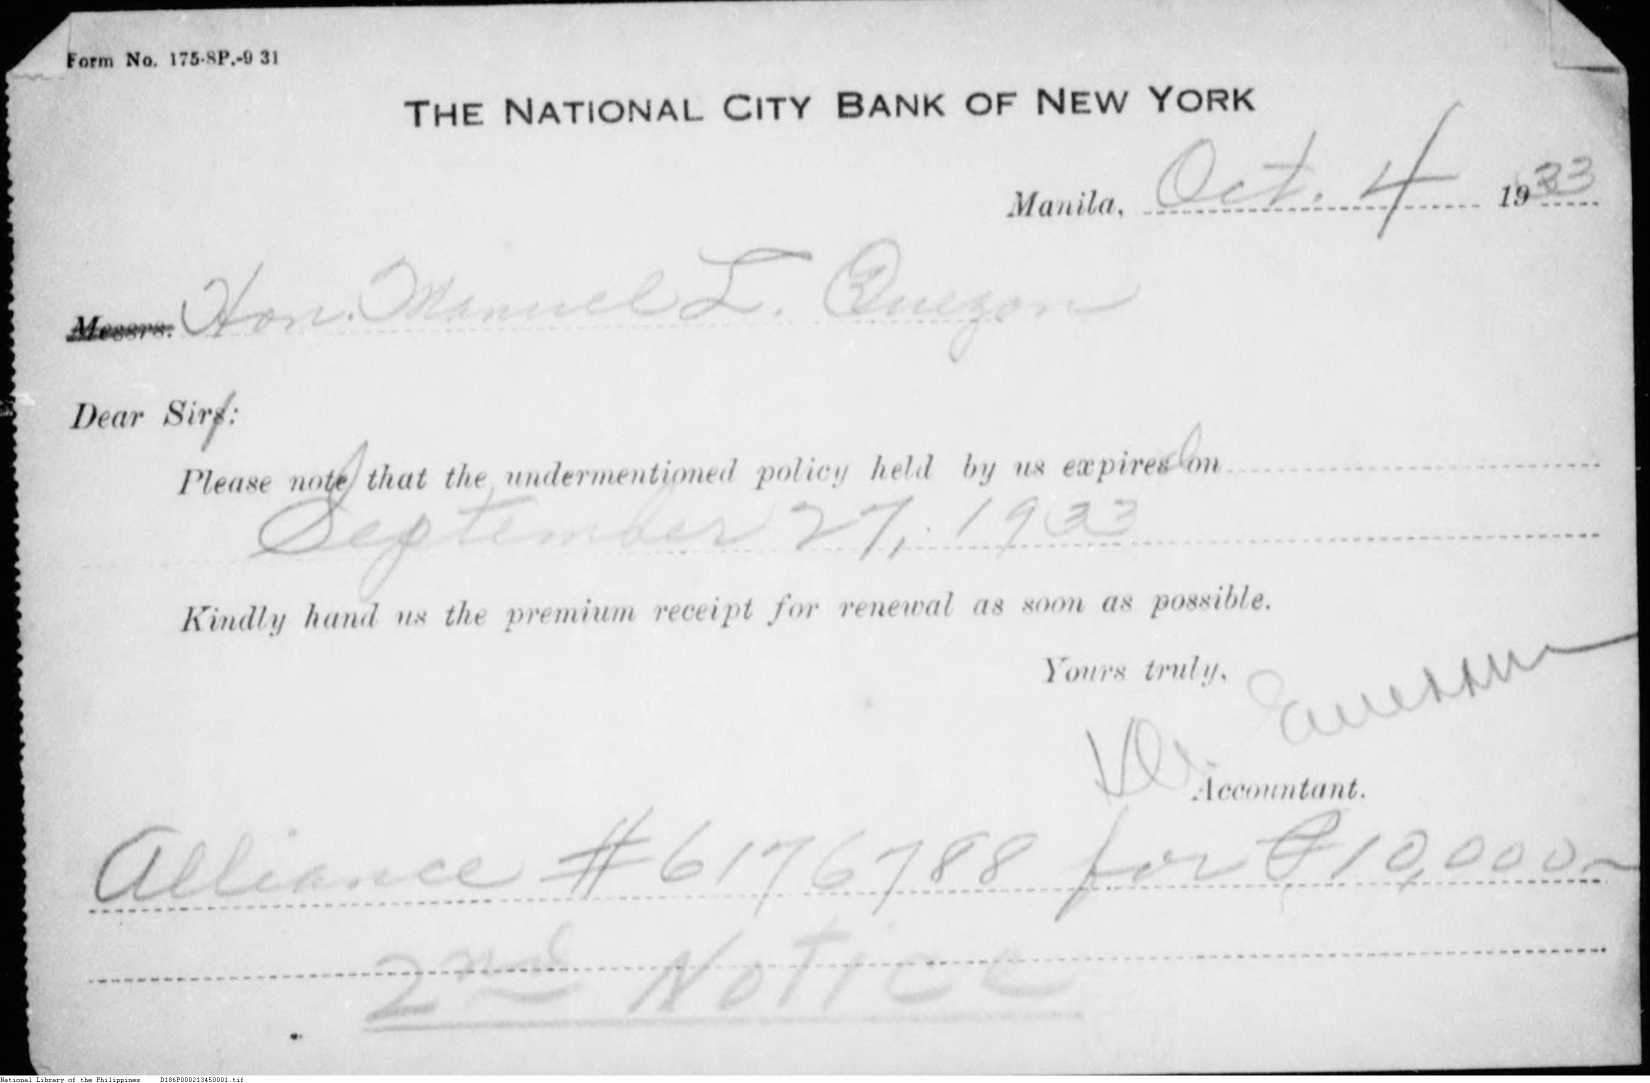 Form No. 175-SP.-9 31
THE NATIONAL CITY BANK OF NEW YORK
Manila, Oct. 4 1933
Messrs. Hon. Manuel L. Quezon
Dear Sirs:
Please note that the undermentioned policy held by us expired on
September 27, 1933
Kindly hand us the premium receipt for renewal as soon as possible.
Yours truly,
Accountant.
Alliance #6176788 for ₱10,000.-
2nd Notice
National Library of the Philippines D186P000213450001.tif